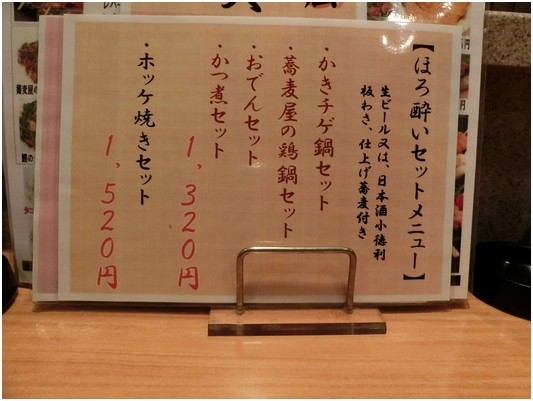 【ほろ酔いセットメニュー】
生ビール又は、日本酒小徳利
板わさ、仕上げ蕎麦付き
・かきチゲ鍋セット
・蕎麦屋の鶏鍋セット
・おでんセット
・かつ煮セット
1,320円
・ホッケ焼きセット
1,520円